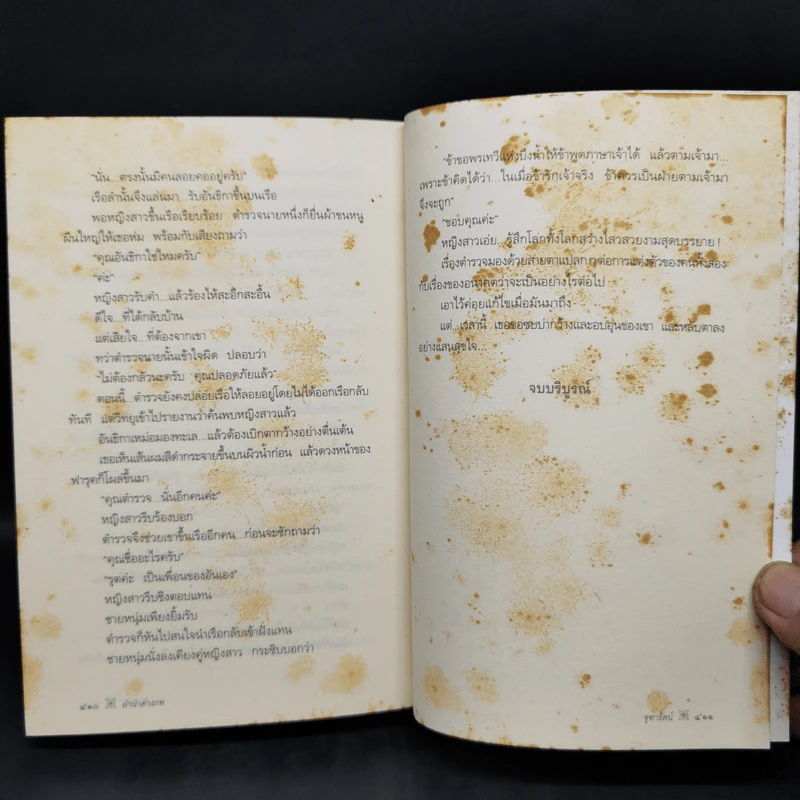 "นั่น...ตรงนั้นมีคนลอยคออยู่ครับ"
เรือลำนั้นจึงแล่นมา...รับอันธิกาขึ้นบนเรือ
พอหญิงสาวขึ้นเรือเรียบร้อย ตำรวจนายหนึ่งก็ยื่นผ้าขนหนู
ผืนใหญ่ให้เธอห่ม พร้อมกับเสียงถามว่า
"คุณอันธิกาใช่ไหมครับ"
"ค่ะ"
หญิงสาวรับคำ...แล้วร้องไห้สะอึกสะอื้น
ดีใจ...ที่ได้กลับบ้าน
แต่เสียใจ...ที่ต้องจากเขา
ทว่าตำรวจนายนั้นเข้าใจผิด ปลอบว่า
"ไม่ต้องกลัวนะครับ คุณปลอดภัยแล้ว"
ตอนนี้...ตำรวจยังคงปล่อยเรือให้ลอยอยู่โดยไม่ได้ออกเรือกลับ
ทันที แต่วิทยุเข้าไปรายงานว่าค้นพบหญิงสาวแล้ว
อันธิกาเหม่อมองทะเล...แล้วต้องเบิกตากว้างอย่างตื่นเต้น
เธอเห็นเส้นผมสีดำกระจายขึ้นบนผิวน้ำก่อน แล้วดวงหน้าของ
ฟารุตก็โผล่ขึ้นมา
"คุณตำรวจ...นั่นอีกคนค่ะ"
หญิงสาวรีบร้องบอก
ตำรวจจึงช่วยเขาขึ้นเรืออีกคน...ก่อนจะซักถามว่า
"คุณชื่ออะไรครับ"
"รุตค่ะ เป็นเพื่อนของอันเอง"
หญิงสาวรีบชิงตอบแทน
ชายหนุ่มเพียงยิ้มรับ
ตำรวจก็หันไปสนใจนำเรือกลับเข้าฝั่งแทน
ชายหนุ่มนั่งลงเคียงคู่หญิงสาว กระซิบบอกว่า
๔๑๐ ลำนำต่างภพ
"ข้าขอพรเทวีแห่งบึงน้ำให้ข้าพูดภาษาเจ้าได้ แล้วตามเจ้ามา...
เพราะข้าคิดได้ว่า...ในเมื่อข้ารักเจ้าจริง ข้าควรเป็นฝ่ายตามเจ้ามา
จึงจะถูก"
"ขอบคุณค่ะ"
หญิงสาวเอ่ย...รู้สึกโลกทั้งโลกสว่างไสวสวยงามสุดบรรยาย !
เรื่องตำรวจมองด้วยสายตาแปลก ๆ ต่อการแต่งตัวของคนทั้งสอง
กับเรื่องของอนาคตว่าจะเป็นอย่างไรต่อไป
เอาไว้ค่อยแก้ไขเมื่อมันมาถึง
แต่...เวลานี้ เธอขอซบบ่ากว้างและอบอุ่นของเขา และหลับตาลง
อย่างแสนสุขใจ...
จบบริบูรณ์
จุฑารัตน์ ๔๑๑